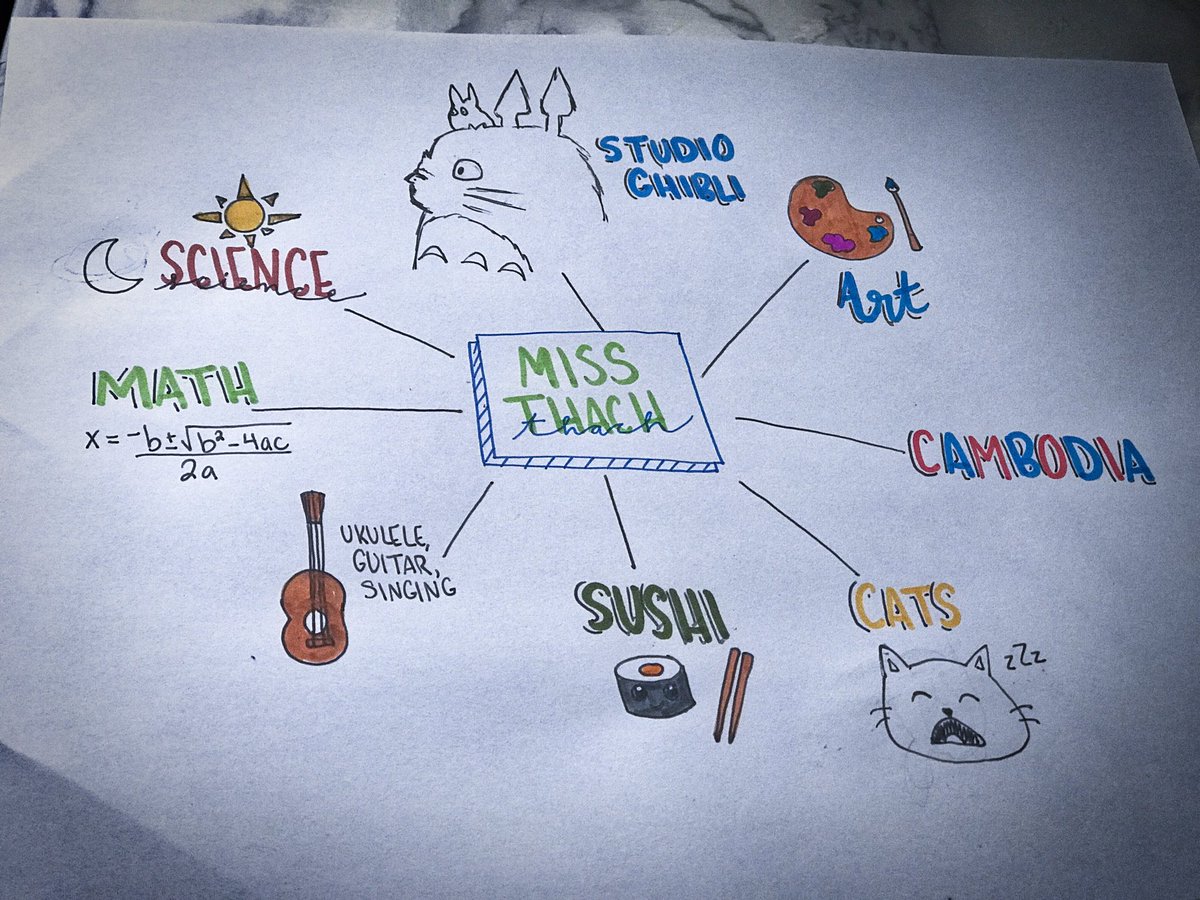 STUDIO
GHIBLI
SCIENCE
science
Art
MISS
THACH
thach
MATH
x = -b ± √b² - 4ac
2a
CAMBODIA
UKULELE,
GUITAR,
SINGING
SUSHI
CATS
zZz